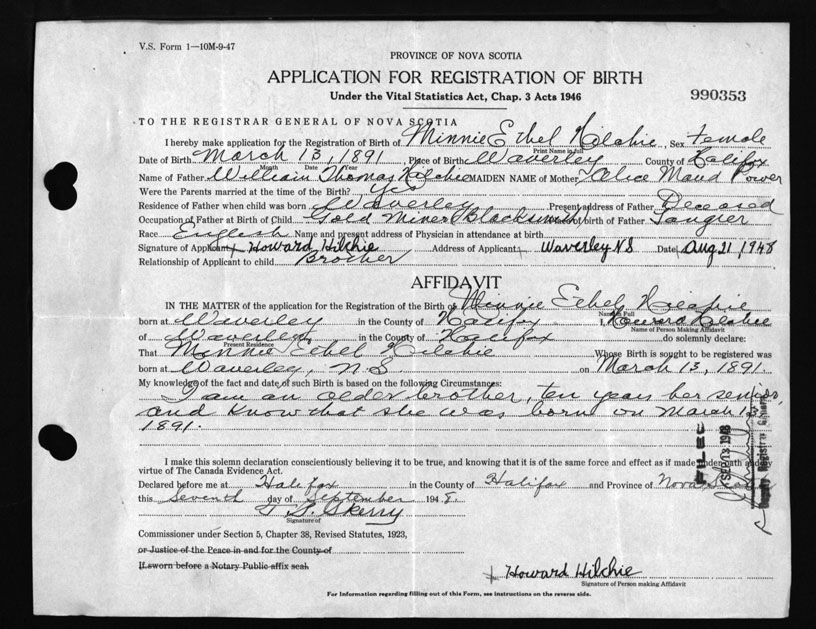 V.S. Form 1—10M-9-47
PROVINCE OF NOVA SCOTIA
APPLICATION FOR REGISTRATION OF BIRTH
Under the Vital Statistics Act, Chap. 3 Acts 1946
990353
TO THE REGISTRAR GENERAL OF NOVA SCOTIA
I hereby make application for the Registration of Birth of Minnie Ethel Hilchie, Sex female
Print Name in full
Date of Birth March 13, 1891, Place of Birth Waverley County of Halifax
Month Date Year
Name of Father William Thomas Hilchie MAIDEN NAME of Mother Alice Maud Power
Were the Parents married at the time of the Birth? Yes
Residence of Father when child was born Waverley Present address of Father Deceased
Occupation of Father at Birth of Child Gold Miner Blacksmith of birth of Father Tangier
Race English Name and present address of Physician in attendance at birth
Signature of Applicant Howard Hilchie Address of Applicant Waverley NS Date Aug 21, 1948
Relationship of Applicant to child Brother
AFFIDAVIT
IN THE MATTER of the application for the Registration of the Birth of Minnie Ethel Hilchie
Name in Full
born at Waverley in the County of Halifax I, Howard Hilchie
Name of Person Making Affidavit
of Waverley in the County of Halifax do solemnly declare:
Present Residence
That Minnie Ethel Hilchie Whose Birth is sought to be registered was
born at Waverley, N.S. on March 13, 1891.
My knowledge of the fact and date of such Birth is based on the following Circumstances:
I am an older brother, ten years her senior,
and know that she was born on March 13,
1891.
FILED
SEP 13 1948
Deputy Registrar General
I make this solemn declaration conscientiously believing it to be true, and knowing that it is of the same force and effect as if made under oath and by
virtue of The Canada Evidence Act.
Declared before me at Halifax in the County of Halifax and Province of Nova Scotia
this Seventh day of September 1948.
Skerry
Signature of
Commissioner under Section 5, Chapter 38, Revised Statutes, 1923,
or Justice of the Peace in and for the County of
If sworn before a Notary Public affix seal.
Howard Hilchie
Signature of Person making Affidavit
For Information regarding filling out of this Form, see Instructions on the reverse side.